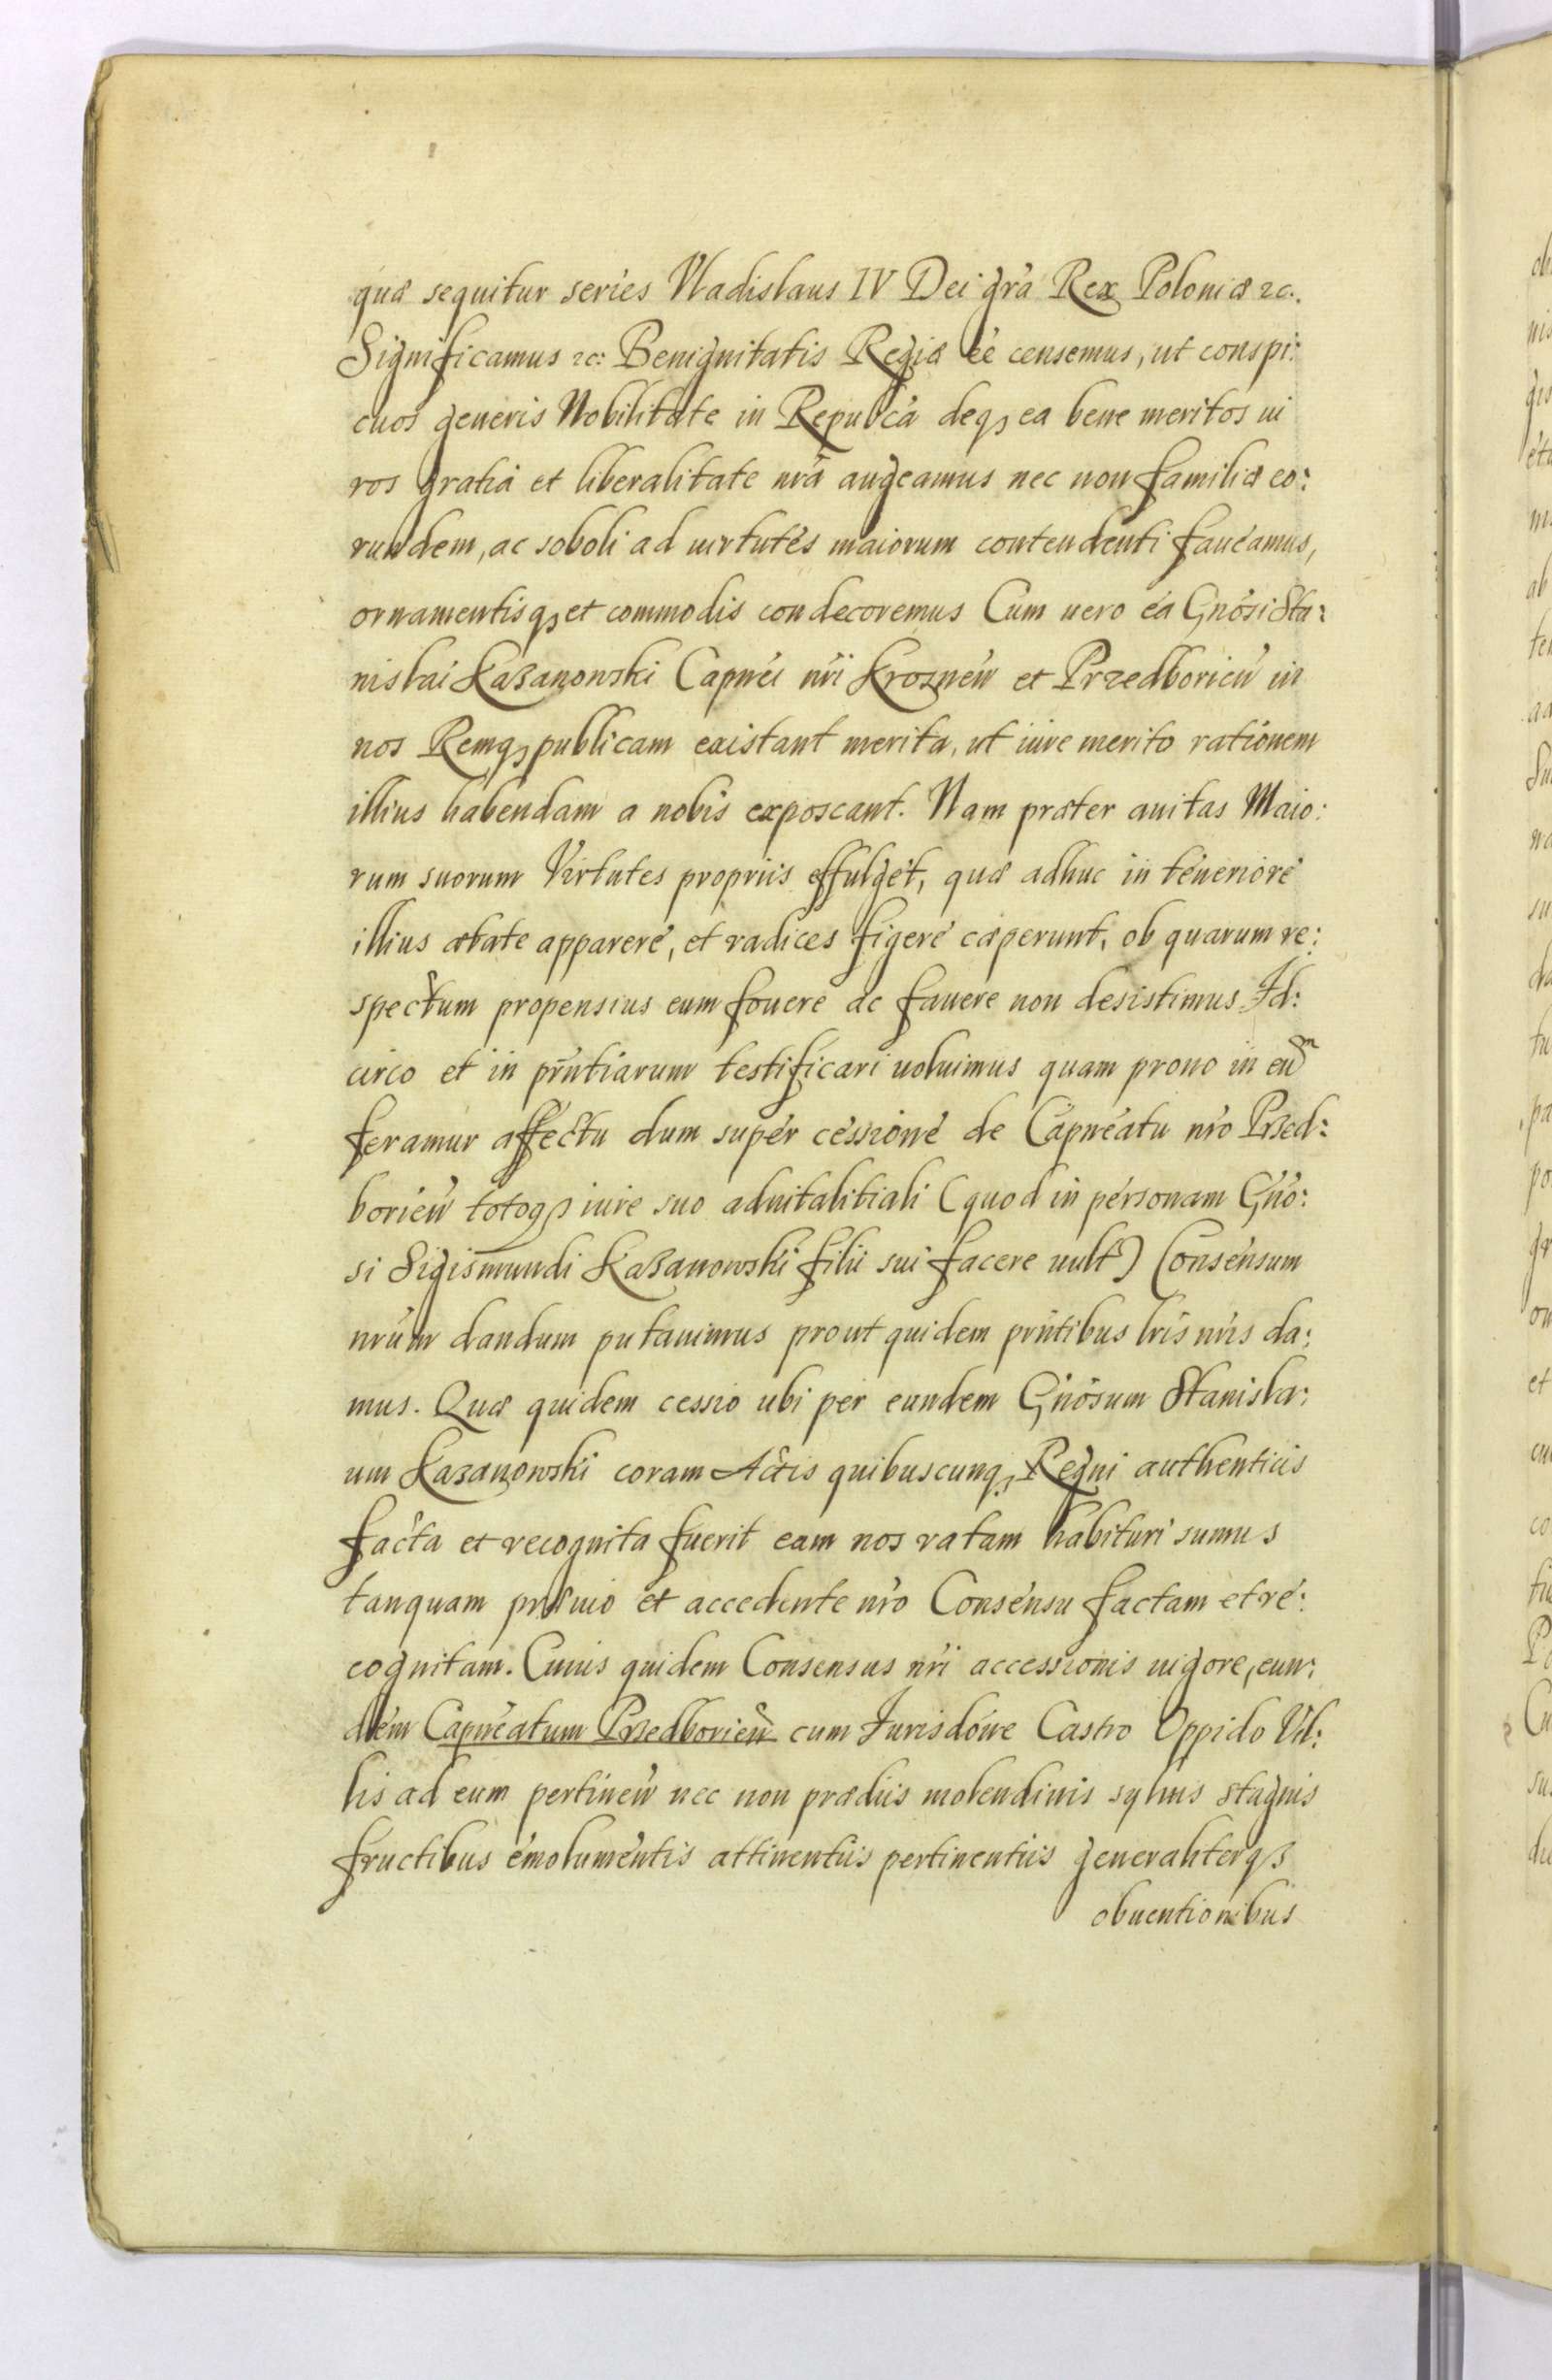 quæ sequitur series Vladislaus IV Dei grã Rex Poloniæ &c.
Significamus &c: Benignitatis Regiæ eẽ censemus, ut conspi:
cuos generis Nobilitate in Repubcã deq3 ea bene meritos ui
ros gratiâ et liberalitate nrã augeamus nec non familiæ eo:
rundem, ac soboli ad uirtutes maiorum contendenti faueamus,
ornamentisq3 et commodis condecoremus Cum uero ea Gnosi Sta:
nislai Kazanowski Capnei nri Krosnen et Przedborien in
nos Remq3 publicam existant merita, ut iure merito rationem
illius habendam a nobis exposcant. Nam præter auitas Maio:
rum suorum Virtutes proprijs effulget, quæ adhuc in teneriore
illius ætate apparere, et radices figere cæperunt, ob quarum re:
spectum propensius eum fouere ac fauere non desistimus Id:
circo et in prntiarum testificari uoluimus quam prono in eũm
feramur affectu dum super cessione de Capneatu nro Przed:
borien totoq3 iure suo aduitalitiali (quod in personam Gno:
si Sigismundi Kazanowski filij sui facere uult) Consensum
nrum dandum putauimus prout quidem prntibus lris nris da:
mus. Quæ quidem cessio ubi per eundem Gnosum Stanisla:
um Kazanowski coram Actis quibuscunq3 Regni authenticis
facta et recognita fuerit eam nos ratam habituri sumus
tanquam præuio et accedente nro Consensu factam et re:
cognitam. Cuius quidem Consensus nri accessionis uigore, eun:
dem Capneatum Przedborien cum Jurisdone Castro Oppido Vil:
lis ad eum pertinen nec non prædijs molendinis syluis stagnis
fructibus emolumentis attinentijs pertinentijs generaliterq3
obuentionibus